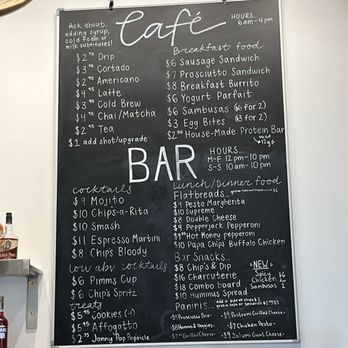 Ask about...
adding syrup,
cold foam or
milk substitutes!
Café
HOURS
6am-4pm
$2.95 Drip
$3 Cortado
$2 Americano
$4 Latte
$3 Cold Brew
$4 Chai/Matcha
$2 Tea
$1 add shot/upgrade
Breakfast food
$6 Sausage Sandwich
$7 Prosciutto Sandwich
$8 Breakfast Burrito
$6 Yogurt Parfait
$6 Sambusas ($6 for 2)
$3 Egg Bites ($3 for 2)
$2.50 House-Made Protein Bar
BAR
HOURS...
M-F 12pm-10pm
S-S 10am-10pm
cocktails
$9 Mojito
$10 Chips-a-Rita
$10 Smash
$11 Espresso Martini
$8 Chips Bloody
low abv cocktails
$6 Pimms Cup
$6 Chip's Spritz
treats
$5.95 Cookies
$5.95 Affogatto
$2.75 Jonny Pop Popsicle
Lunch/Dinner food
Flatbreads
$9 Pesto Margherita
$10 Supreme
$8 Double Cheese
$9 Pepperjack Pepperoni
$9 Hot Honey Pepperoni
$10 Papa Chips Buffalo Chicken
Bar Snacks...
$8 Chip's & Dip
$16 Charcuterie
$18 Combo board
$10 Hummus Spread
NEW
Spicy Chicken
Sambusas
$6
2
Paninis
$9 Prosciutto Brie
$8 Hummus & Veggies
$7 Grilled Cheese
$9 Chicken Pesto
$9 Salami Goat Cheese